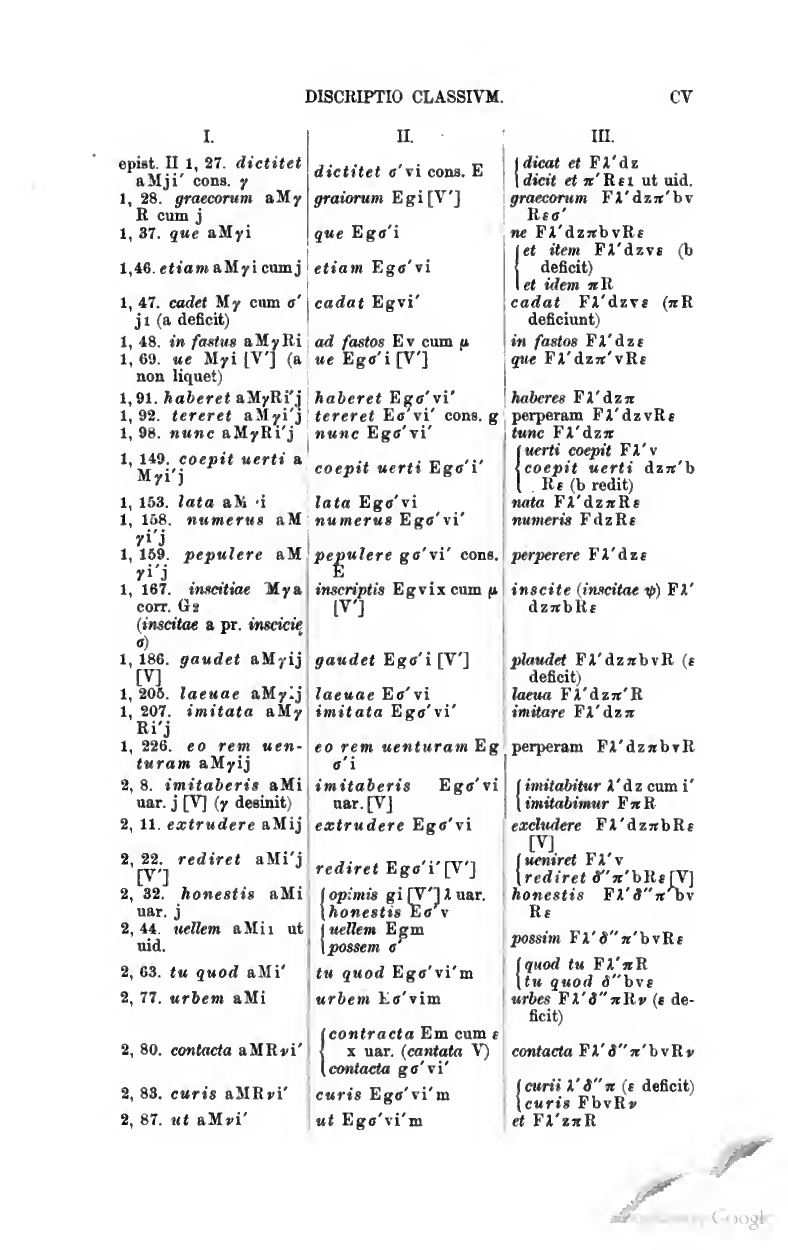 DISCRIPTIO CLASSIVM. CV
I. II. III.
epist. II 1, 27. dictitet
aMji′ cons. γ
dictitet σ′vi cons. E
dicat et Fλ′dz
dicit et π′Rει ut uid.
1, 28. graecorum aMγ
R cum j
graiorum Egi [V′]
graecorum Fλ′dzπ′bv
Rεσ′
1, 37. que aMγi
que Egσ′i
ne Fλ′dzπbvRε
1,46. etiam aMγi cum j
etiam Egσ′vi
et item Fλ′dzvε (b
deficit)
et idem πR
1, 47. cadet Mγ cum σ′
j1 (a deficit)
cadat Egvi′
cadat Fλ′dzvε (πR
deficiunt)
1, 48. in fastus aMγRi
ad fastos Ev cum μ
in fastos Fλ′dzε
1, 69. ue Mγi [V′] (a
non liquet)
ue Egσ′i [V′]
que Fλ′dzπ′vRε
1,91. haberet aMγRi′j
haberet Egσ′vi′
haberes Fλ′dzπ
1, 92. tereret aMγi′j
tereret Eσ′vi′ cons. g
perperam Fλ′dzvRε
1, 98. nunc aMγRi′j
nunc Egσ′vi′
tunc Fλ′dzπ
1, 149. coepit uerti a
Mγi′j
coepit uerti Egσ′i′
uerti coepit Fλ′v
coepit uerti dzπ′b
Rε (b redit)
1, 153. lata aM i
lata Egσ′vi
nata Fλ′dzπRε
1, 158. numerus aM
γi′j
numerus Egσ′vi′
numeris FdzRε
1, 159. pepulere aM
γi′j
pepulere gσ′vi′ cons.
E
perperere Fλ′dzε
1, 167. inscitiae Mγa
corr. G2
(inscitae a pr. inscicię
σ)
inscriptis Egvix cum μ
[V′]
inscite (inscitae ψ) Fλ′
dzπbRε
1, 186. gaudet aMγij
[V]
gaudet Egσ′i [V′]
plaudet Fλ′dzπbvR (ε
deficit)
1, 205. laeuae aMγij
laeuae Eσ′vi
laeua Fλ′dzπ′R
1, 207. imitata aMγ
Ri′j
imitata Egσ′vi′
imitare Fλ′dzπ
1, 226. eo rem uen-
turam aMγij
eo rem uenturam Eg
σ′i
perperam Fλ′dzπbvR
2, 8. imitaberis aMi
uar. j [V] (γ desinit)
imitaberis Egσ′vi
uar. [V]
imitabitur λ′dz cum i′
imitabimur FπR
2, 11. extrudere aMij
extrudere Egσ′vi
excludere Fλ′dzπbRε
[V]
2, 22. rediret aMi′j
[V′]
rediret Egσ′i′ [V′]
ueniret Fλ′v
rediret δ″π′bRε [V]
2, 32. honestis aMi
uar. j
opimis gi [V′] λ uar.
honestis Eσ′v
honestis Fλ′δ″π′bv
Rε
2, 44. uellem aMi1 ut
uid.
uellem Egm
possem σ′
possim Fλ′δ″π′bvRε
2, 63. tu quod aMi′
tu quod Egσ′vi′m
quod tu Fλ′πR
tu quod δ″bvε
2, 77. urbem aMi
urbem Eσ′vim
urbes Fλ′δ″πRν (ε de-
ficit)
2, 80. contacta aMRνi′
contracta Em cum ε
x uar. (cantata V)
contacta gσ′vi′
contacta Fλ′δ″π′bvRν
2, 83. curis aMRνi′
curis Egσ′vi′m
curii λ′δ″π (ε deficit)
curis FbvRν
2, 87. ut aMνi′
ut Egσ′vi′m
et Fλ′zπR